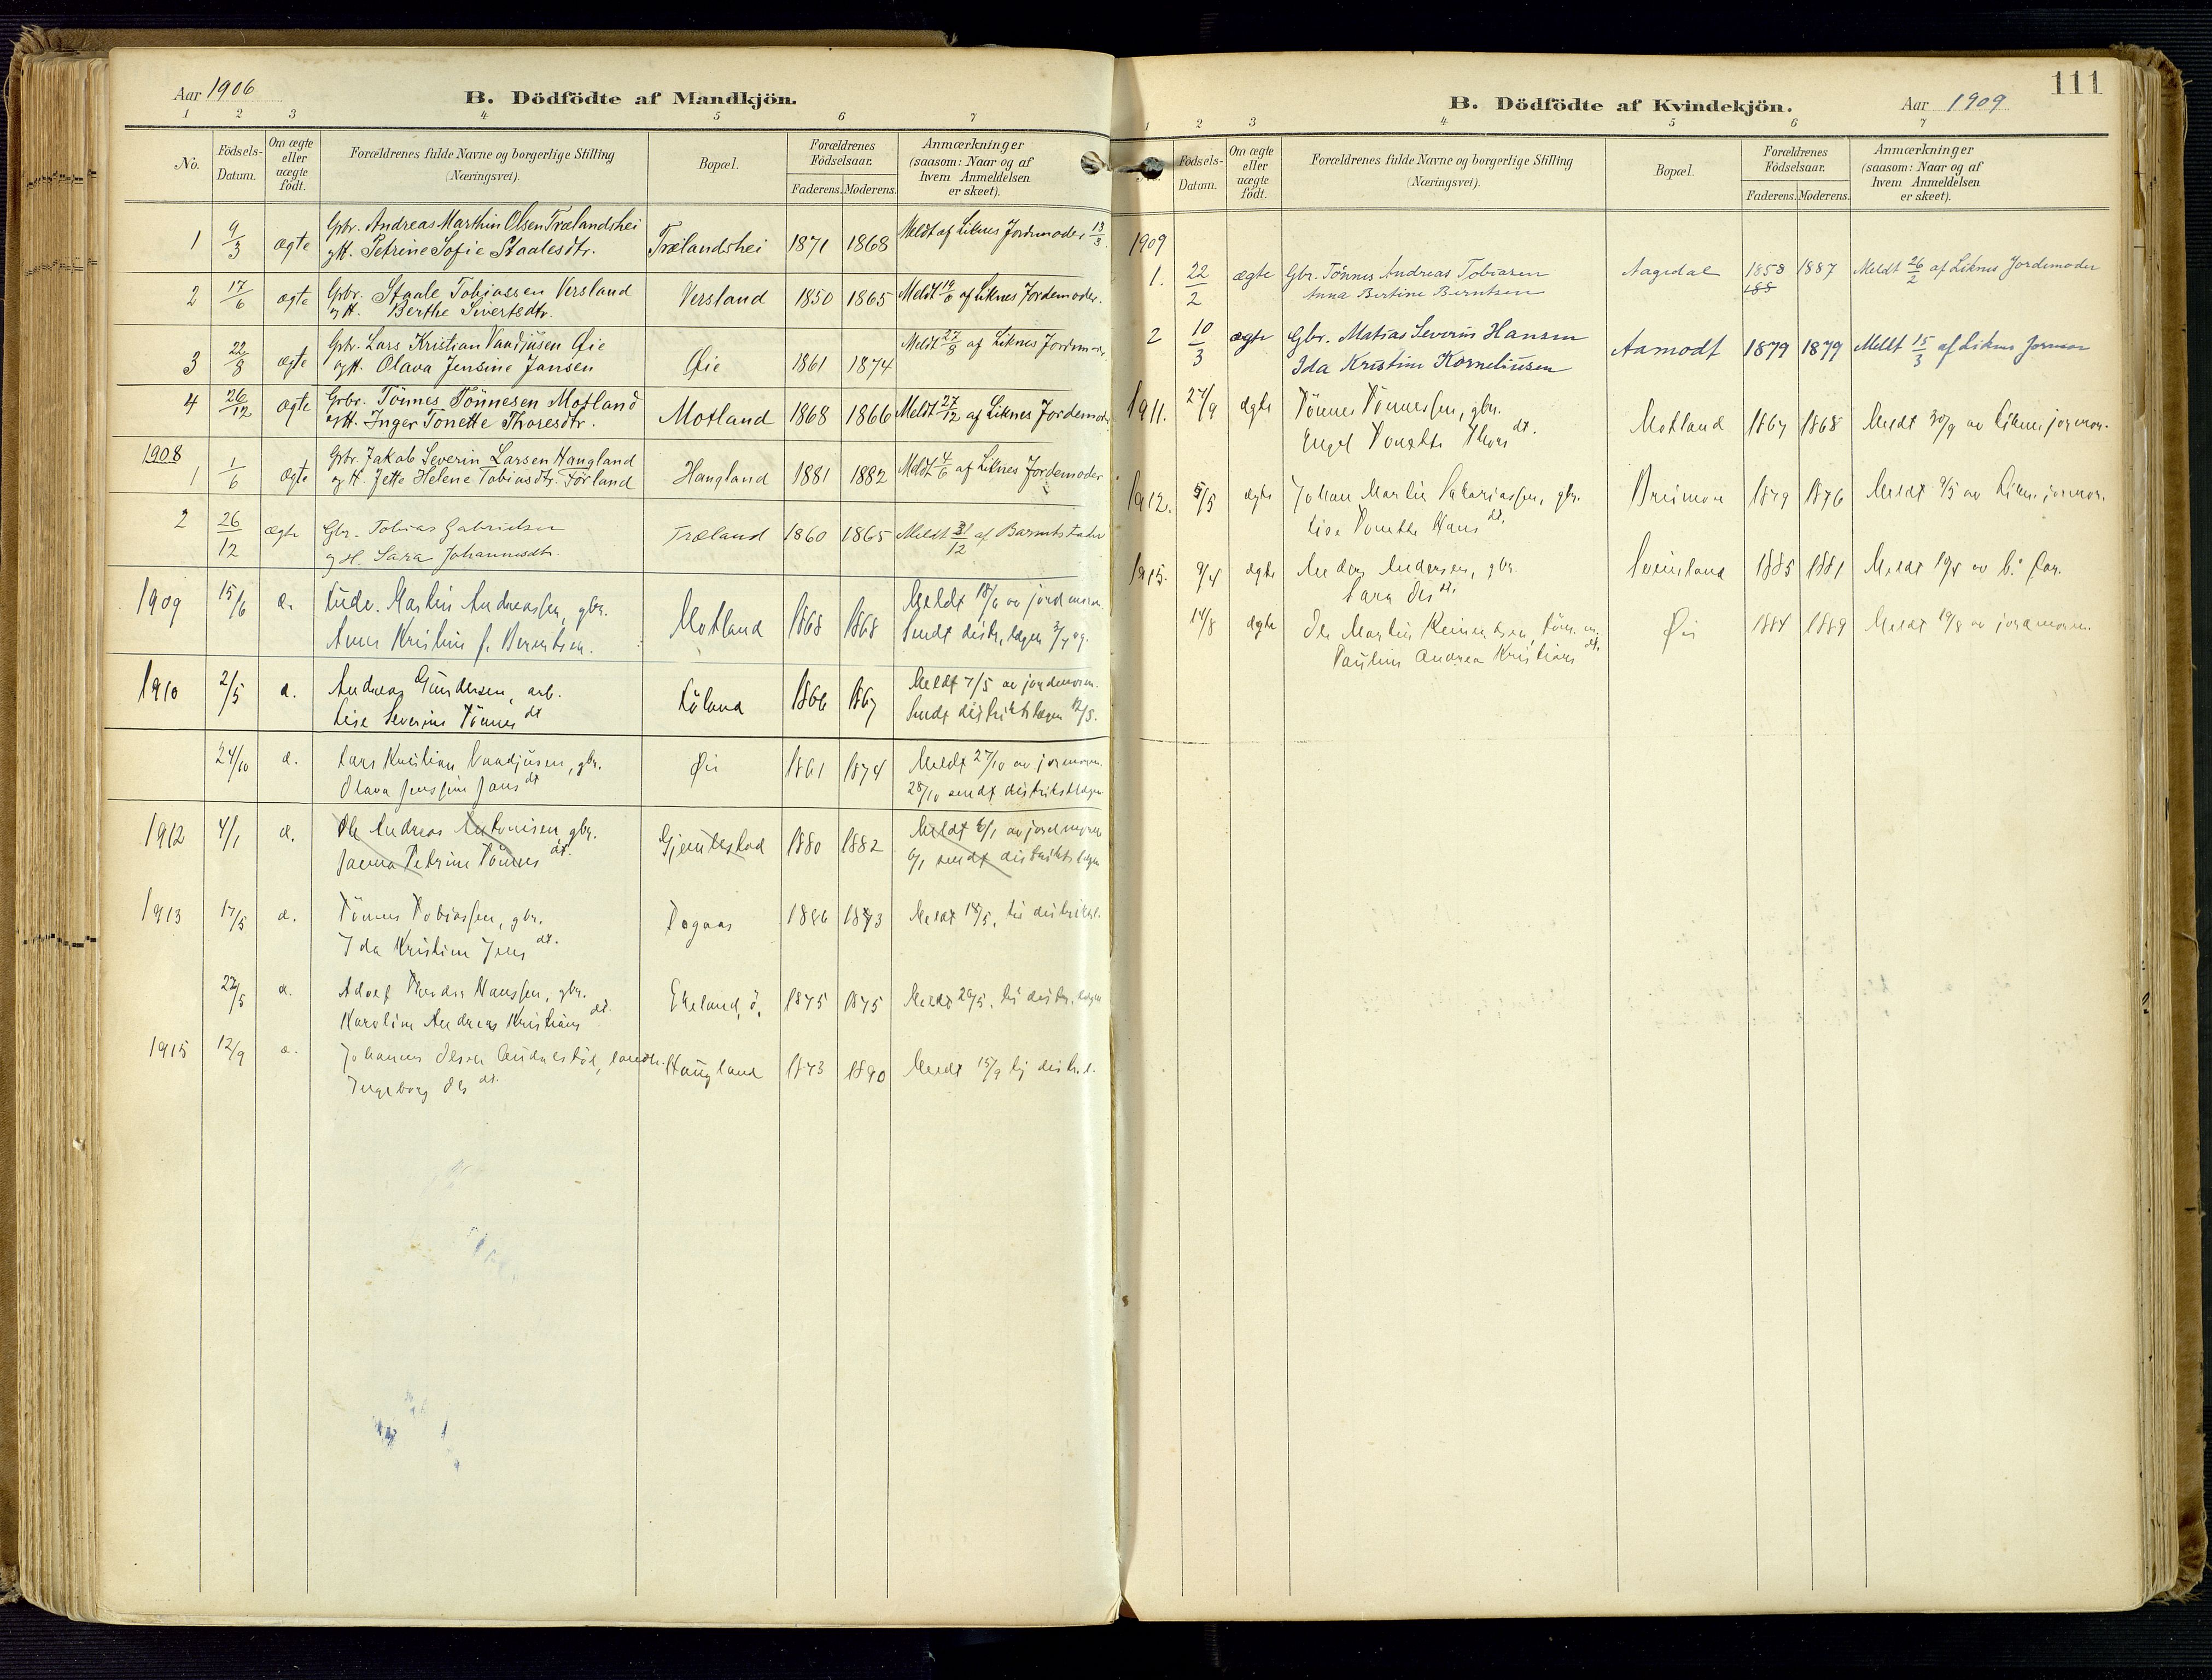 Aar 1906
B. Dödfödte af Mandkjön.
1 2 3 4 5 6 7
No. Födsels-Datum. Om ægte eller uægte födt. Forældrenes fulde Navne og borgerlige Stilling (Næringsvei). Bopæl. Forældrenes Födselsaar. Faderens. Moderens. Anmærkninger (saasom: Naar og af hvem Anmeldelsen er skeet).
1 9/3 ægte Gbr. Andreas Marthin Olsen Trælandshei Trælandshei 1871 1868 Meldt af Liknes Jordemoder 13/3.
og H. Petrine Sofie Staalesdtr.
2 17/6 ægte Gbr. Staale Tobiassen Versland Versland 1850 1865 Meldt 19/6 af Liknes Jordemoder.
og H. Berthe Sivertsdtr.
3 22/8 ægte Gbr. Lars Kristian Vaadjusen Øie Øie 1861 1874 Meldt 27/8 af Liknes
og H. Olava Jensine Jansen
4 26/12 ægte Gbr. Tönnes Tönnesen Motland Motland 1868 1866 Meldt 27/12 af Liknes Jordemoder
og H. Inger Tonette Thoresdtr.
1908
1 1/6 ægte Gbr. Jakob Severin Larsen Haugland Haugland 1881 1882 Meldt 4/6 af Liknes Jordemoder
og H. Jette Helene Tobiasdtr. Förland
2 26/12 ægte Gbr. Tobias Gabrielsen Træland 1860 1865 Meldt 31/12 af Barnets fader
og H. Sara Johannesdtr.
1909 15/6 æ. Ludv. Martin Andreassen, gbr. Motland 1868 1868 Meldt 18/6 av jordmoren.
Anne Kristine f. Berentsen. Sendt distr. lægen 2/7 09.
1910 2/5 æ. Andreas Gundersen, arb. 1866 1867 Meldt 7/5 av jordmoren.
Lise Severine Tönnes dt Sendt distriktslægen 12/5.
24/10 æ. Lars Kristian Vaadjusen, gbr. Øie 1861 1874 Meldt 27/10 av jormoren.
Olava Jensine Jans dt 28/10 sendt distriktslægen
1912 4/1 æ. Ole Andreas Antonisen, gbr. Gjemlestad 1880 1882 Meldt 6/1 av jordmoren
Janna Petrine Tönnes dt. 6/1 sendt distriktslægen
1913 17/5 æ. Tönnes Tobiassen, gbr. Togaas 1886 1873 Meldt 18/5, til distriktsl.
Ida Kristine Jens dt.
22/5 æ. Adolf Theodor Hanssen, gbr. Ekeland, ö. 1875 1875 Meldt 26/5, til distr. lægen
Karoline Andreas Kristians dt.
1915 12/9 æ. Johannes Olsen Haugland 1873 1890 Meldt 15/9 til distr. l.
Ingeborg Ols dt.
111
B. Dödfödte af Kvindekjön.
Aar 1909
1 2 3 4 5 6 7
Födsels-Datum. Om ægte eller uægte födt. Forældrenes fulde Navne og borgerlige Stilling (Næringsvei). Bopæl. Forældrenes Födselsaar. Faderens. Moderens. Anmærkninger (saasom: Naar og af hvem Anmeldelsen er skeet).
1909
1. 22/2 ægte Gbr. Tönnes Andreas Tobiasen Aagedal 1858 1887 Meldt 26/2 af Liknes Jordemoder
Anna Bertine Berntsen 188
2 10/3 ægte Gbr. Matias Severin Hansen Aamodt 1879 1879 Meldt 15/3 af Liknes Jormor
Ida Kristine Korneliusen
1911. 27/9 ægte Tönnes Tönnessen, gbr. Motland 1867 1868 Meldt 30/9 av Liknes jormor.
Engel Tonette Thors dt.
1912. 5/5 ægte Johan Martin Sakariassen, gbr. Breimoen 1879 1876 Meldt 9/5 av Liknes jormor.
Lise Tonette Hans dt.
1915. 9/4 ægte Anders Andersen, gbr. Sveinsland 1885 1881 Meldt 19/4 av b.s far.
Sara Ols dt.
14/8 ægte Ole Martin Reinertsen, Øie 1884 1889 Meldt 19/8 av jordmoren.
Pauline Andrea Kristians dt.